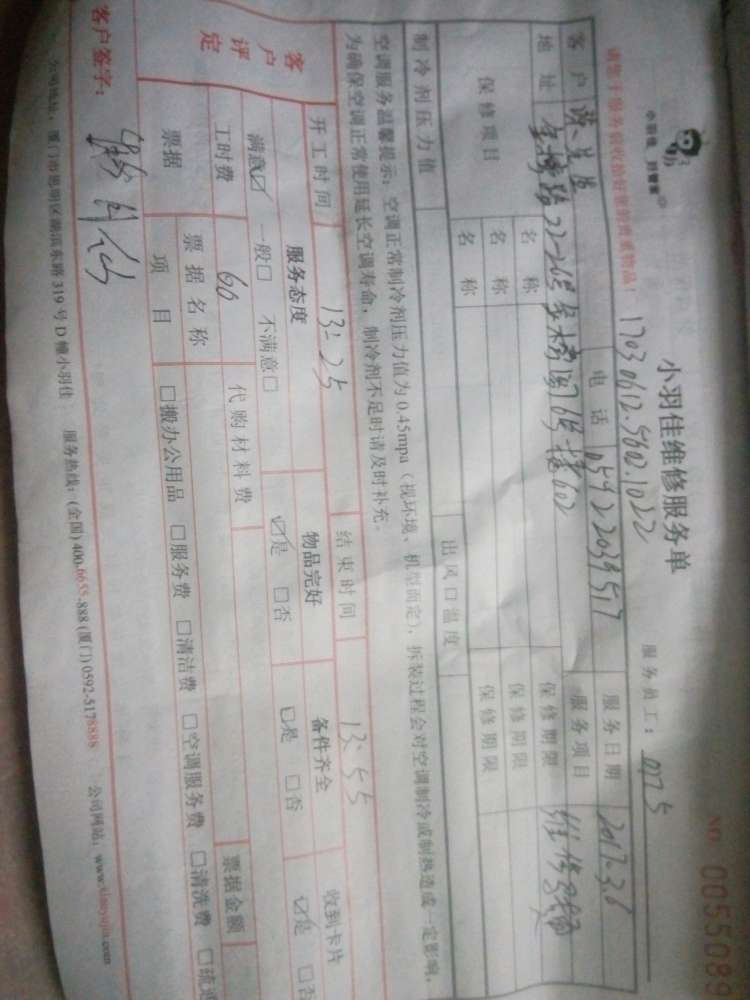 小羽佳维修服务单
NO. 0055089
17030612.5602.1022
服务员工: 0175
请您于服务前收拾好您的贵重物品!
客户 电话 0592 2039517 服务日期 2017.3.6
地址 服务项目
保修项目 名称 保修期限
名称 保修期限
名称 保修期限
制冷剂压力值 出风口温度
空调服务温馨提示: 空调正常制冷剂压力值为 0.45mpa (视环境、机型而定), 拆装过程会对空调制冷或制热造成一定影响,
为确保空调正常使用延长空调寿命, 制冷剂不足时请及时补充。
开工时间 13:25 结束时间 13:55
客户评定 服务态度 物品完好 备件齐全 收到卡片
满意☑ 一般□ 不满意□ ☑是 □否 ☑是 □否 ☑是 □否
工时费 60 代购材料费
票据 票据名称 票据金额
项目 □搬办公用品 □服务费 □清洁费 □空调服务费 □清洗费
客户签字:
公司地址: 厦门市思明区湖滨东路 319 号 D 幢小羽佳 服务热线: (全国) 400-6655-888 (厦门) 0592-5178888 公司网站: www.xiaoyujia.com